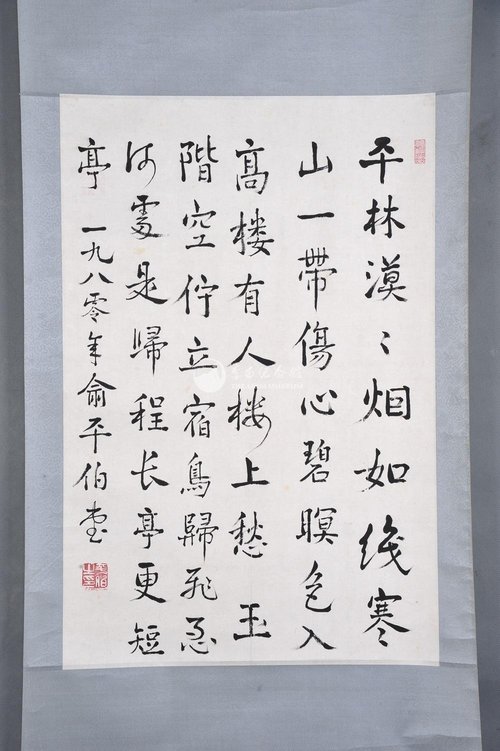 平林漠〻烟如織寒
山一帶傷心碧暝色入
高楼有人楼上愁 玉
階空佇立宿鳥歸飛急
何處是歸程长亭更短
亭 一九八零年俞平伯書